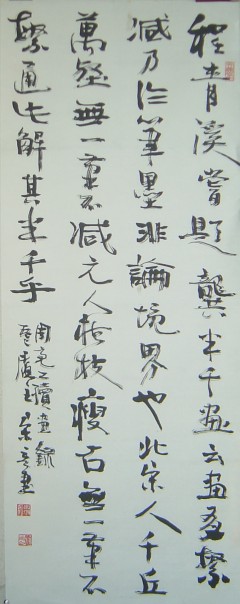 程青溪嘗題龔半千畫云畫有繁
減乃論筆墨非論境界也北宋人千丘
萬壑無一筆不減元人枯枝瘦石無一筆不
繁通此解其半千乎
周亮工讀畫錄